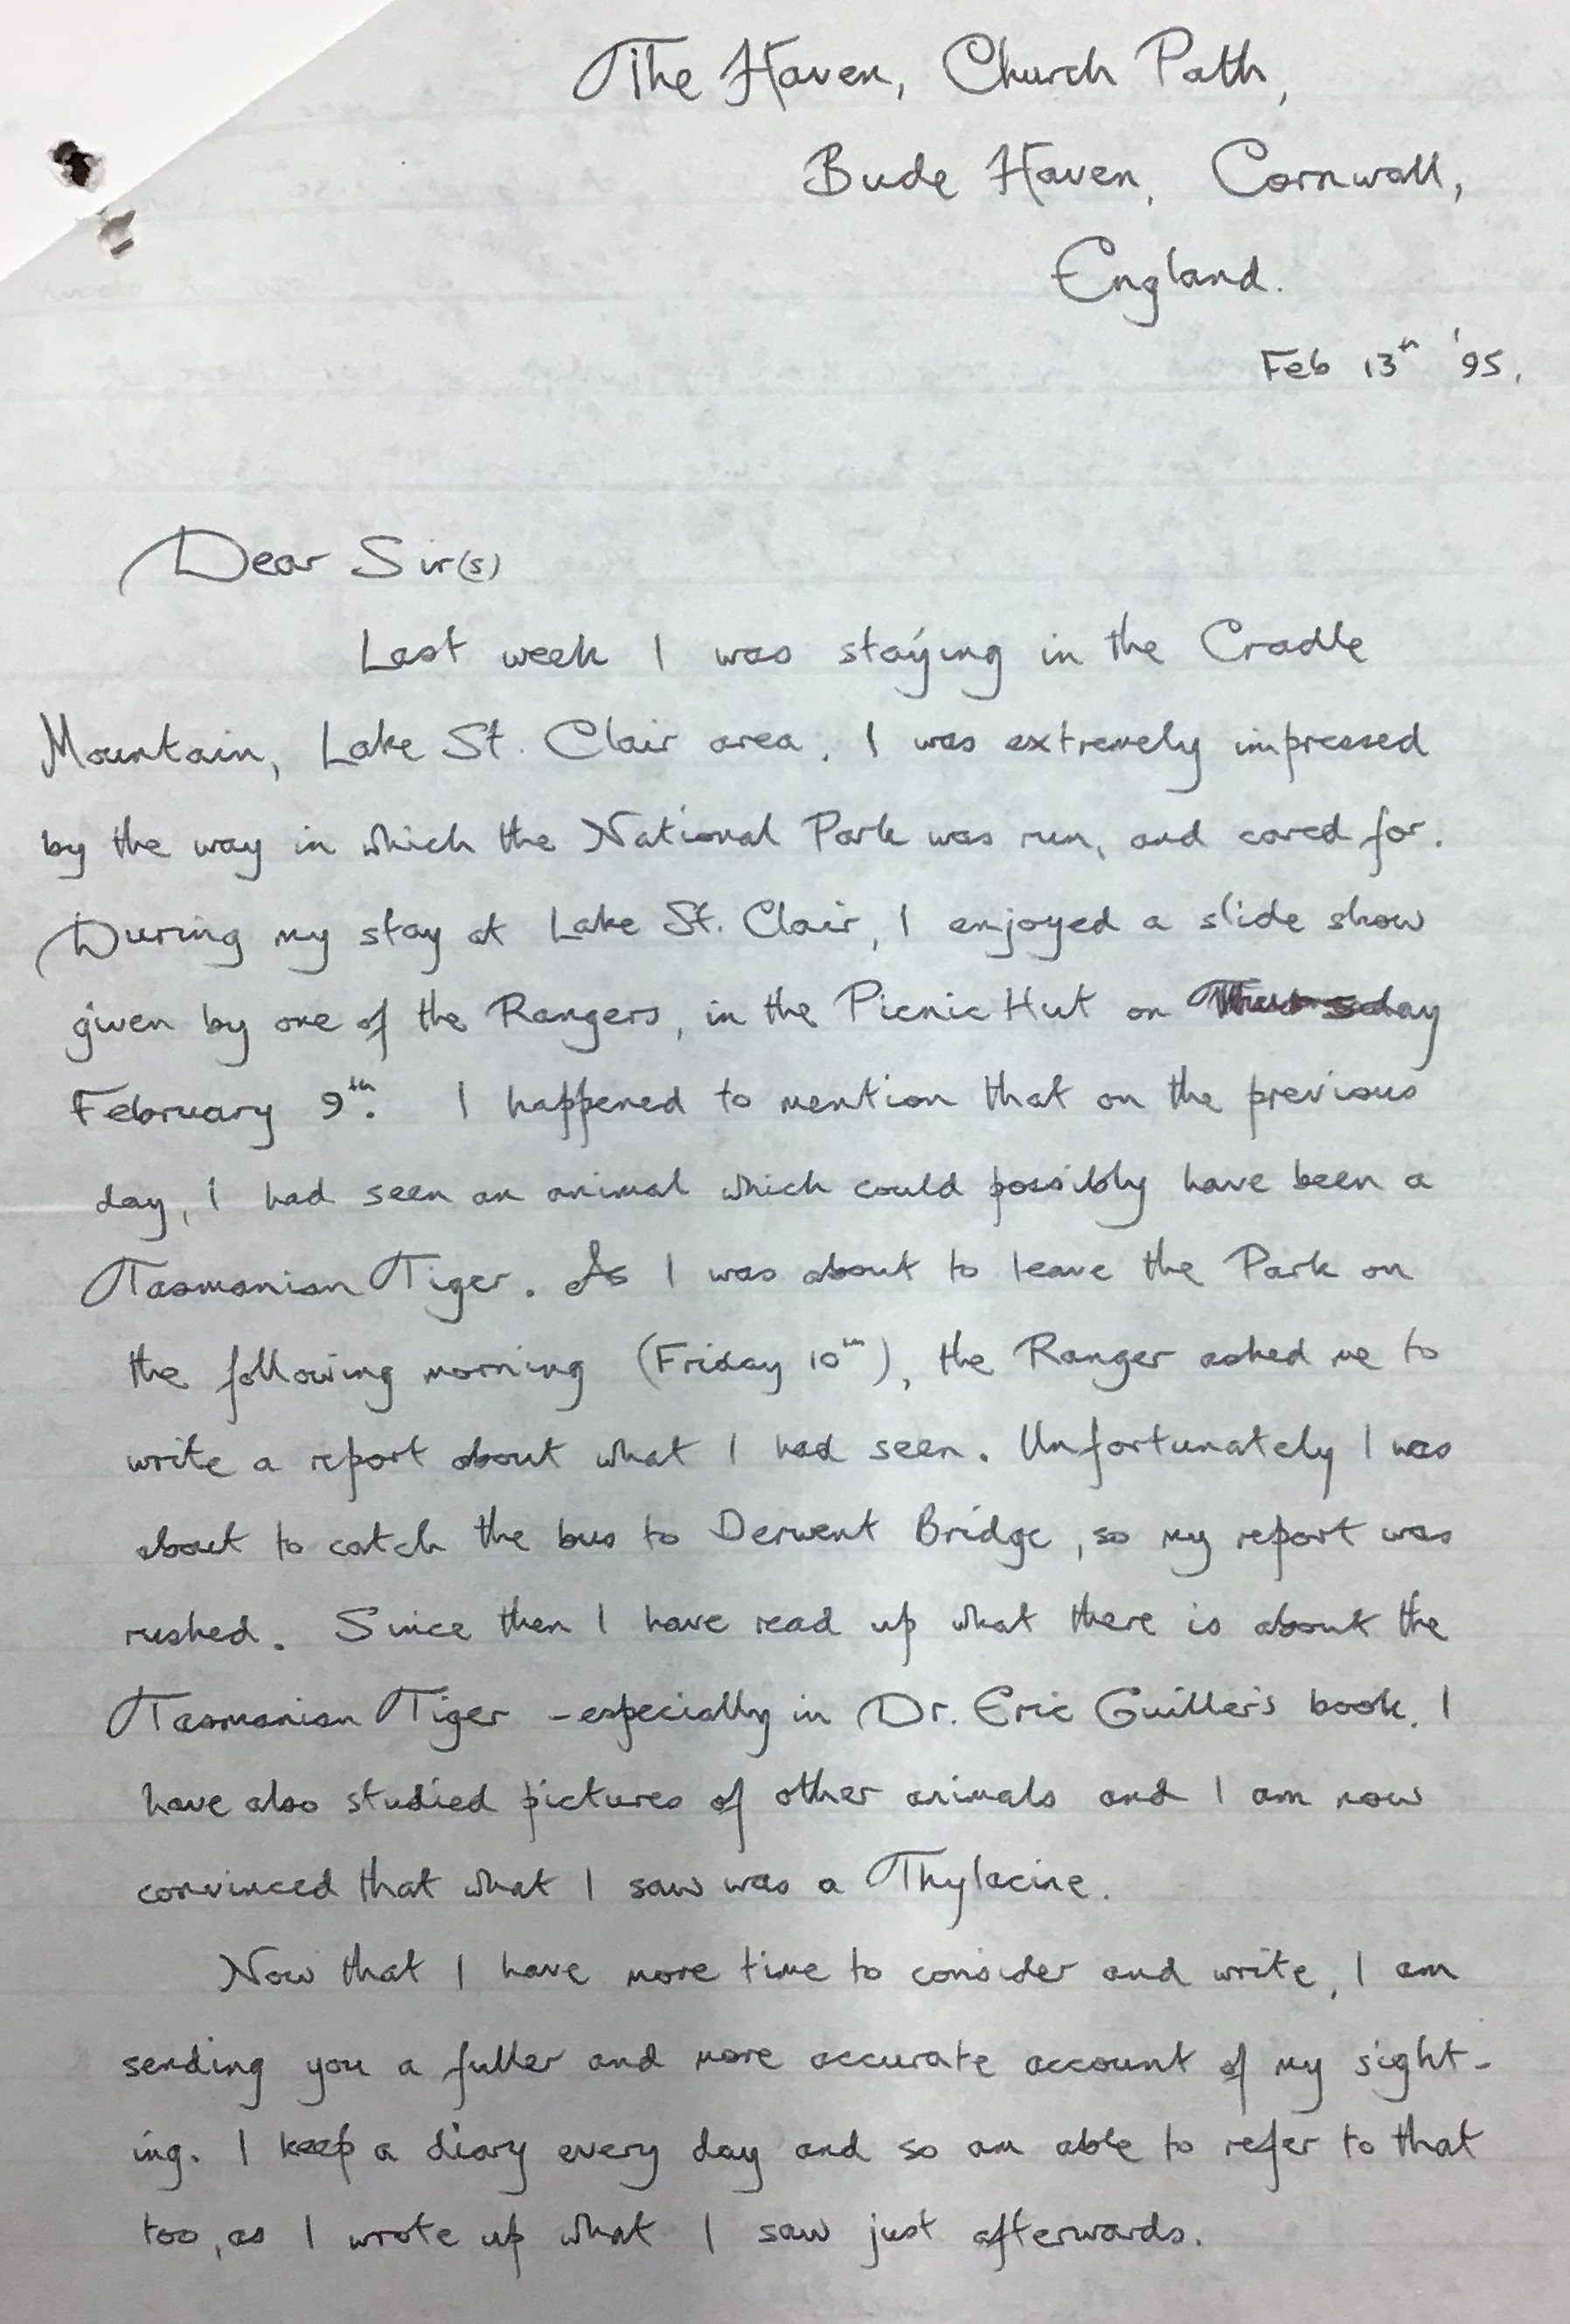 The Haven, Church Path,
Bude Haven, Cornwall,
England.
Feb 13th '95.
Dear Sir(s)
Last week I was staying in the Cradle
Mountain, Lake St. Clair area. I was extremely impressed
by the way in which the National Park was run, and cared for.
During my stay at Lake St. Clair, I enjoyed a slide show
given by one of the Rangers, in the Picnic Hut on Thursday
February 9th. I happened to mention that on the previous
day, I had seen an animal which could possibly have been a
Tasmanian Tiger. As I was about to leave the Park on
the following morning (Friday 10th), the Ranger asked me to
write a report about what I had seen. Unfortunately I was
about to catch the bus to Derwent Bridge, so my report was
rushed. Since then I have read up what there is about the
Tasmanian Tiger - especially in Dr. Eric Guiller's book. I
have also studied pictures of other animals and I am now
convinced that what I saw was a Thylacine.
Now that I have more time to consider and write, I am
sending you a fuller and more accurate account of my sight-
ing. I keep a diary every day and so am able to refer to that
too, as I wrote up what I saw just afterwards.